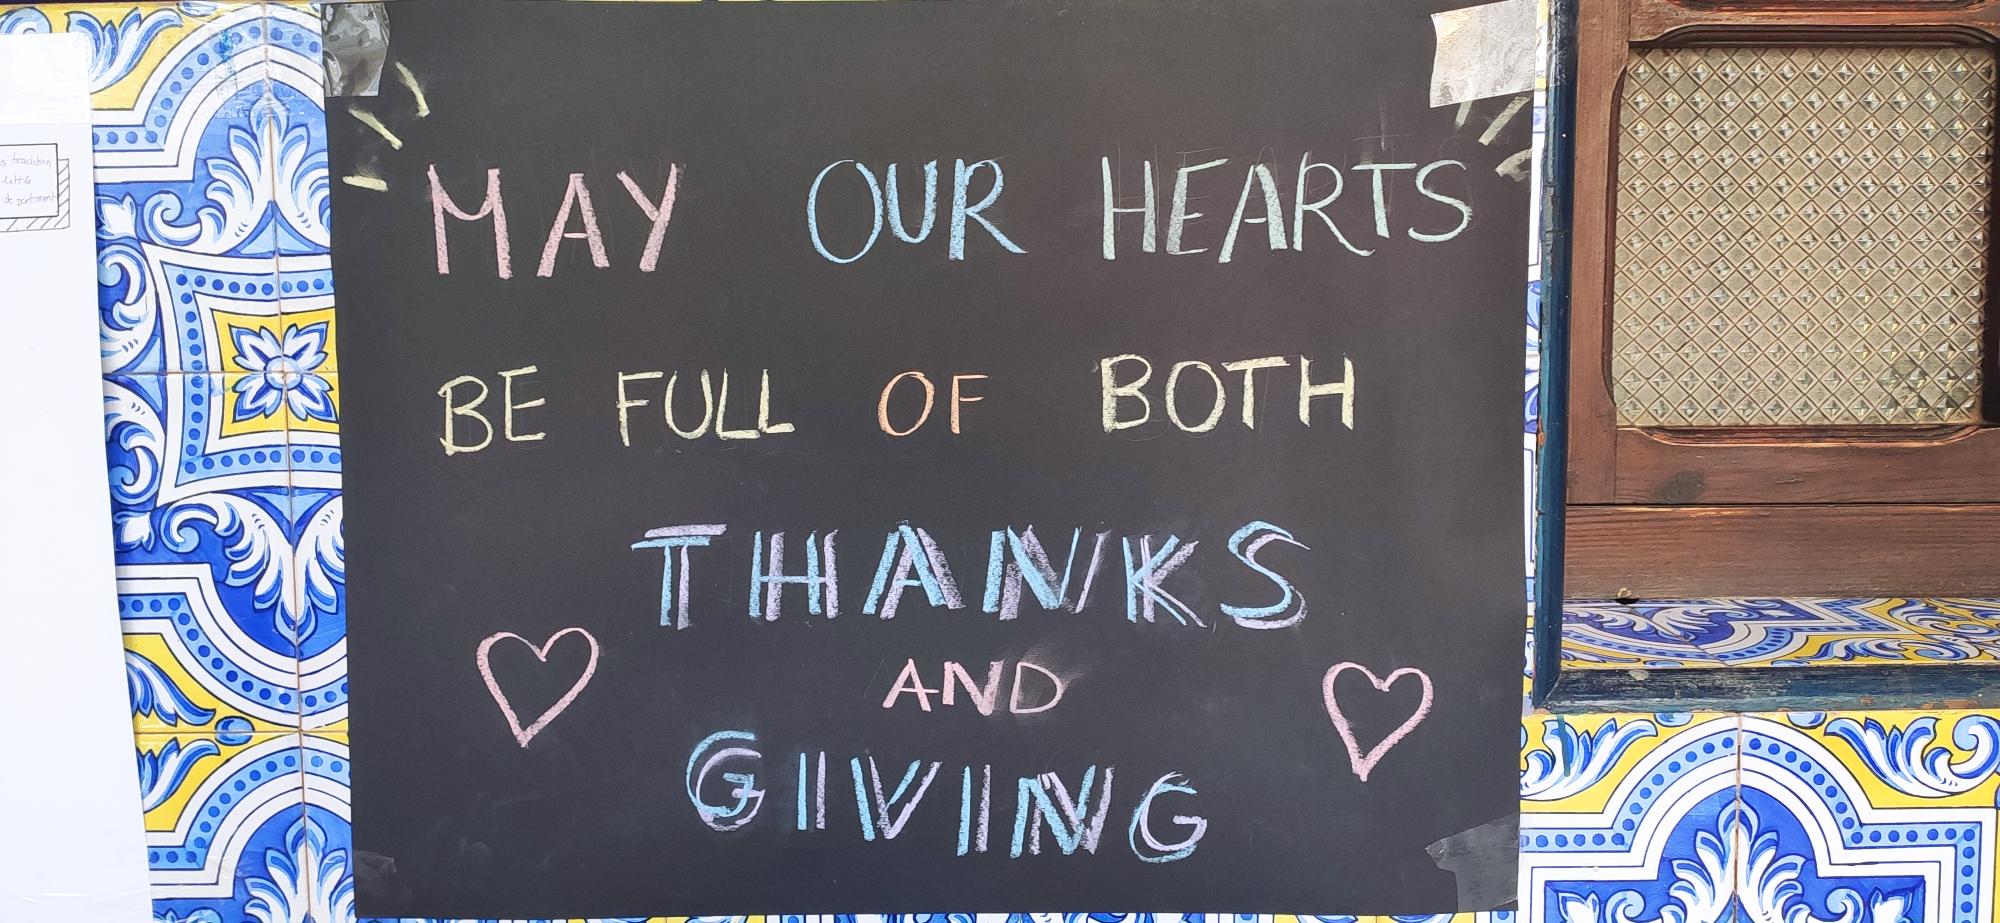 s tradition
little
de partament
MAY OUR HEARTS
BE FULL OF BOTH
THANKS
AND
GIVING